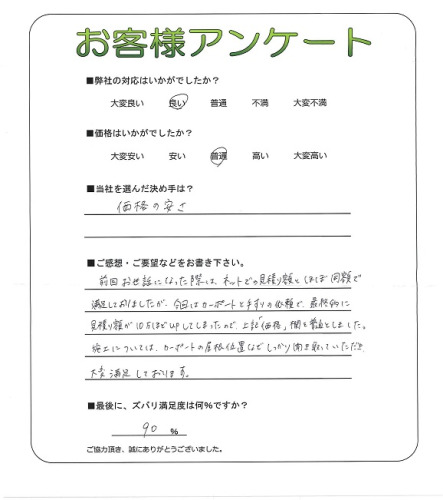 お客様アンケート
■弊社の対応はいかがでしたか？
大変良い 良い 普通 不満 大変不満
■価格はいかがでしたか？
大変安い 安い 普通 高い 大変高い
■当社を選んだ決め手は？
価格の安さ
■ご感想・ご要望などをお書き下さい。
前回お世話になった際は、ネットでの見積り額とほぼ同額で
満足しておりましたが、今回はカーポートと手すりの依頼で、最終的に
見積り額が10万ほどUPしてしまったので、上記「価格」欄を普通としました。
施工については、カーポートの屋根位置などしっかり聞き取っていただき
大変満足しております。
■最後に、ズバリ満足度は何％ですか？
90 ％
ご協力頂き、誠にありがとうございました。